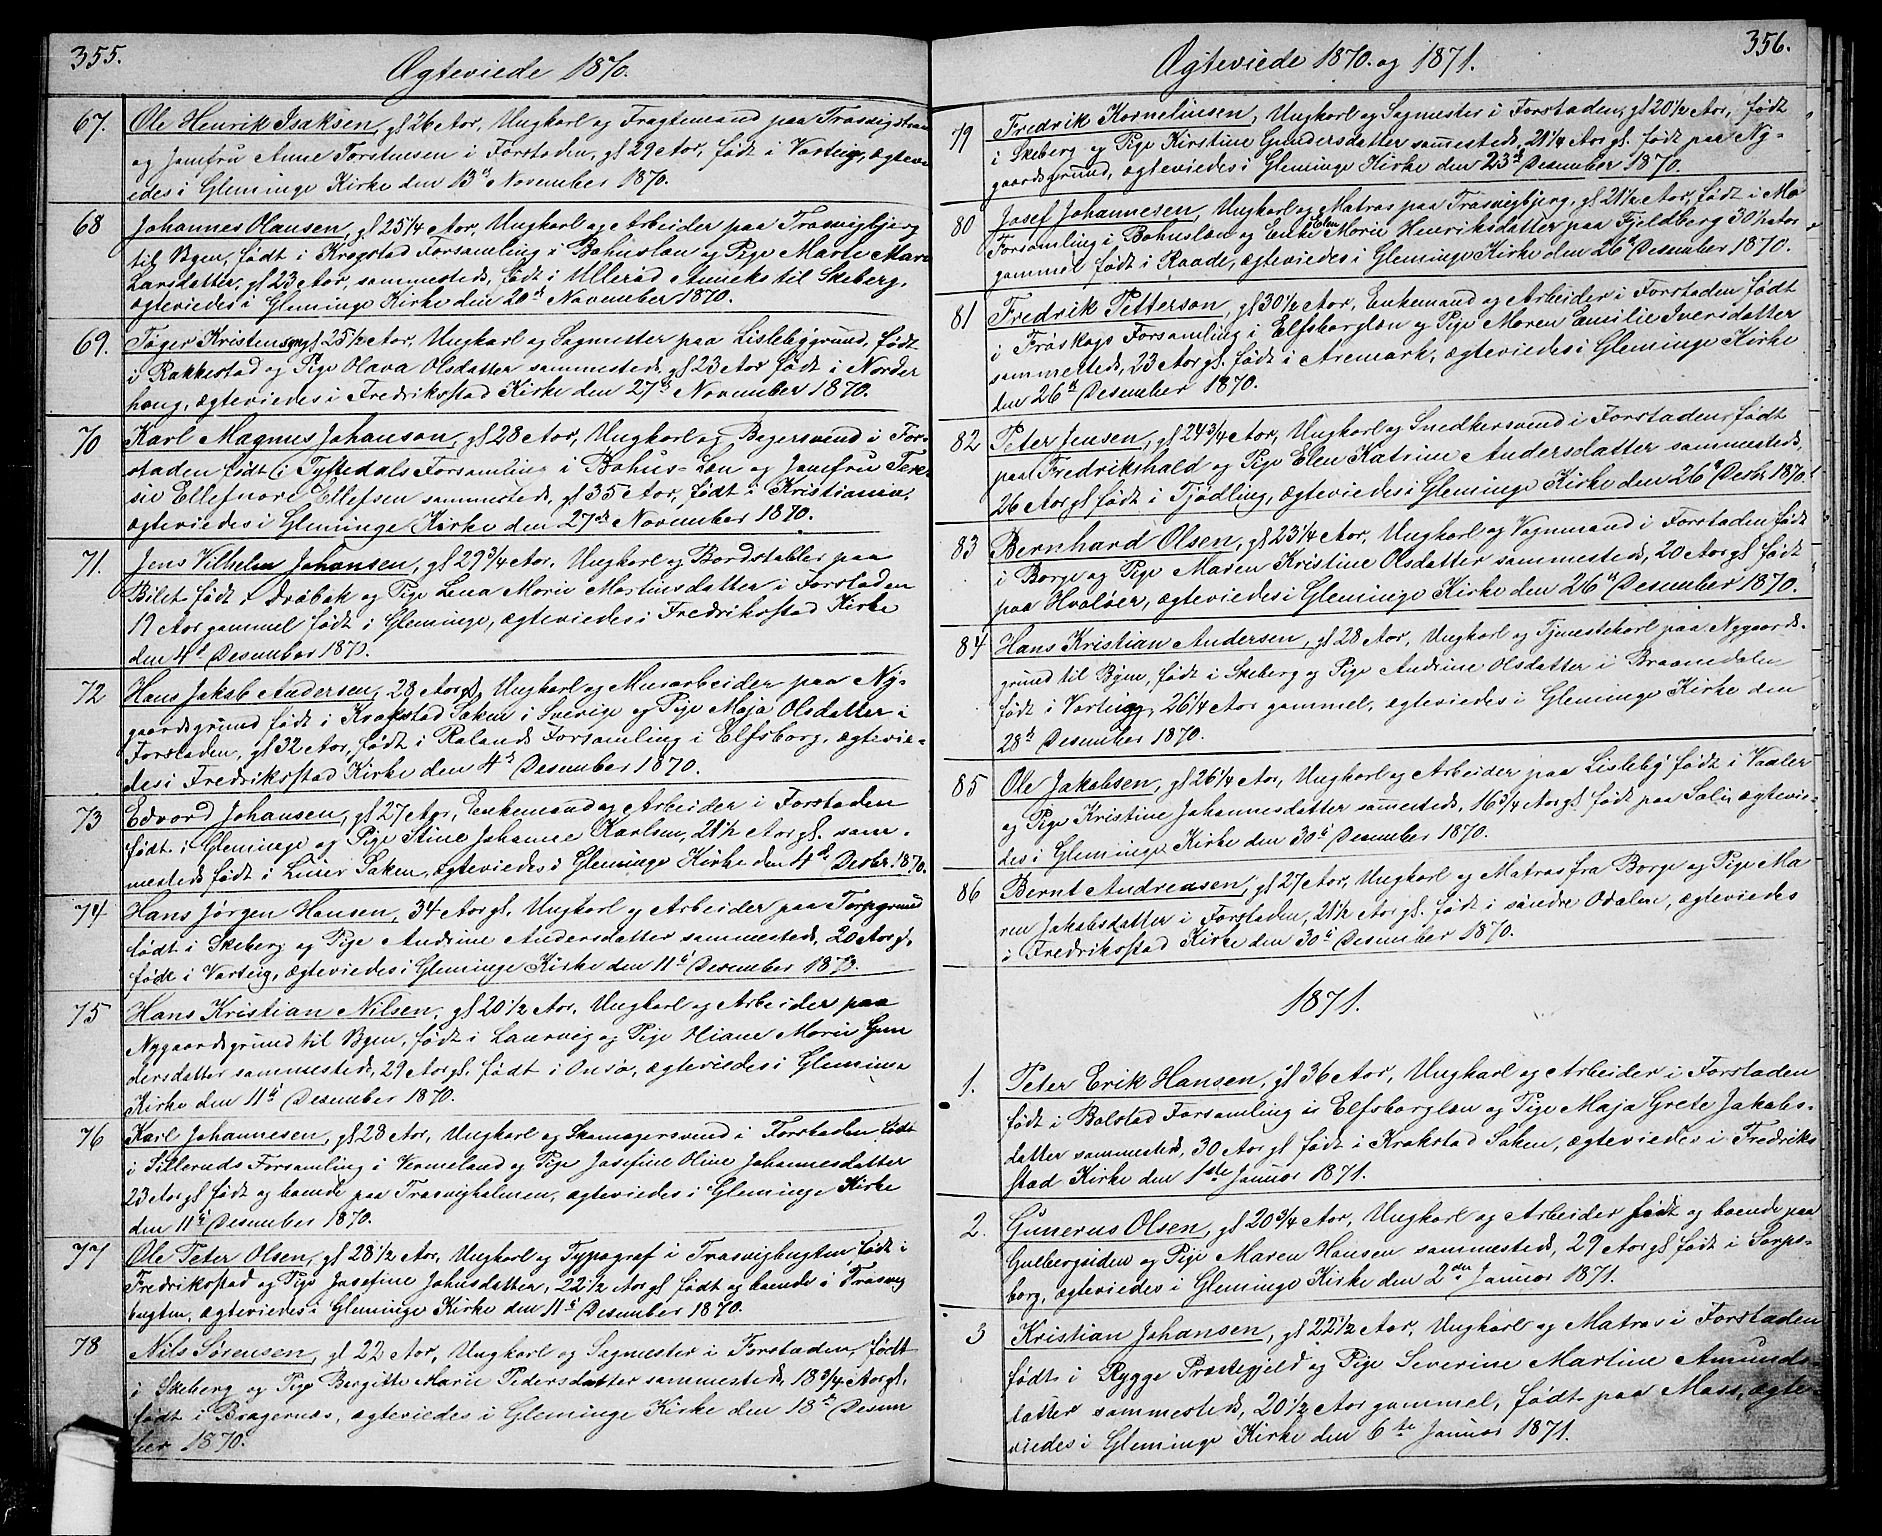 355.
Ægteviede 1870.
67. Ole Henrik Isaksen, gl 26 Aar, Ungkarl og Fragtemand paa Trosvigstran
og Jomfru Anne Torstensen i Forstaden, gl 29 Aar, født i Varteig, ægtevi
edes i Glemminge Kirke den 13de November 1870.
68 Johannes Olausen, gl 25 1/4 Aar, Ungkarl og Arbeider paa Trosvigbjerg
til Byen, født i Krogstad Forsamling i Bohuslän og Pige Marte Marie
Larsdatter, gl 23 Aar, sammesteds, født i Ullerød Anneks til Skeberg,
ægteviedes i Glemminge Kirke den 20de November 1870.
69. Tøger Kristensen, gl 25 1/2 Aar, Ungkarl og Sagmester paa Lislebygrund, født
i Rakkestad og Pige Olava Olsdatter sammesteds, gl 23 Aar født i Norder
houg, ægteviedes i Fredriksstad Kirke den 27de November 1870.
70 Karl Magnus Johanson, gl 28 Aar, Ungkarl og Bagersvend i For-
staden født i Tyftedals Forsamling i Bohus-Län og Jomfru Tere-
sie Ellefsen sammesteds, gl 35 Aar, født i Kristiania,
ægteviedes i Glemminge Kirke den 27de November 1870.
71. Jens Vilhelm Johansen, gl 29 3/4 Aar, Ungkarl og Bordstabler paa
Bilet født i Drøbak og Pige Lena Marie Mortinsdatter i Forstaden
19 Aar gammel født i Glemminge, ægteviedes i Fredriksstad Kirke
den 4de Desember 1870.
72 Hans Jakob Andersen, 28 Aar gl, Ungkarl og Murarbeider paa Ny-
gaardsgrund født i Krokstad Soken i Sverig og Pige Maja Olsdatter i
Forstaden, gl 32 Aar, født i Rolands Forsamling i Elfsborg, ægtevie-
des i Fredriksstad Kirke den 4de Desember 1870.
73 Edvard Johansen, gl 27 Aar, Enkemand og Arbeider i Forstaden
født i Glemminge og Pige Stine Johanne Karlsen, 21 1/2 Aar gl. sam-
mesteds født i Soken, ægteviedes i Glemminge Kirke den 4de Desbr. 1870.
74 Hans Jørgen Hansen, 34 Aar gl, Ungkarl og Arbeider paa Torpgrund
født i Skeberg og Pige Andrine Andersdatter sammesteds, 20 Aar gl.
født i Varteig, ægteviedes i Glemminge Kirke den 11te Desember 1870.
75 Hans Kristian Nilsen, gl 20 1/2 Aar, Ungkarl og Arbeider paa
Nygaardsgrund til Byen, født i Laurvig og Pige Oliane Marie Gun
dersdatter sammesteds, 29 Aar gl, født i Onsø, ægteviedes i Glemminge
Kirke den 11te Desember 1870.
76 Karl Johannesen, gl 28 Aar, Ungkarl og Skomagersvend i Forstaden født
i Silleruds Forsamling i Vermeland og Pige Josefine Oline Johannesdatter
23 Aar gl født og boende paa Trosvigholmen, ægteviedes i Glemminge Kirke
den 11te Desember 1870.
77 Ole Peter Olsen, gl 28 1/2 Aar, Ungkarl og Typograf i Trosvigbugten, født i
Fredriksstad og Pige Josefine Johnsdatter, 22 1/2 Aar gl født og boende i Trosvig
bugten, ægteviedes i Glemminge Kirke den 11te Desember 1870.
78 Nils Sørensen, gl 22 Aar, Ungkarl og Sagmester i Forstaden, født
i Skeberg og Pige Bergitte Marie Pedersdatter sammesteds, 18 3/4 Aar gl.
født i Bragernæs, ægteviedes i Glemminge Kirke den 18de Desem
ber 1870.
356.
Ægteviede 1870. og 1871.
79 Fredrik Korneliusen, Ungkarl og Sagmester i Forstaden, gl 20 1/2 Aar, født
i Skeberg og Pige Kirstine Gundersdatter sammesteds, 21 1/4 Aar gl. født paa Ny-
gaardsgrund, ægteviedes i Glemminge Kirke den 23de Desember 1870.
80 Josef Johannesen, Ungkarl og Matros paa Trosvigbjerg, gl 21 1/2 Aar, født i Mo
Forsamling i Bohuslän og Enke Elen Marie Henriksdatter paa Fjeldberg 30 1/2 Aar
gammel født i Raade, ægteviedes i Glemminge Kirke den 26de Desember 1870.
81 Fredrik Petterson, gl 30 1/2 Aar, Enkemand og Arbeider i Forstaden født
i Fröskogs Forsamling i Elfsborglän og Pige Maren Emilie Iversdatter
sammesteds, 23 Aar gl. født i Aremark, ægteviedes i Glemminge Kirke
den 26de Desember 1870.
82 Peter Jensen, gl 24 3/4 Aar, Ungkarl og Snedkersvend i Forstaden, født
paa Fredrikshald og Pige Elen Katrine Andersdatter sammesteds,
26 Aar gl født i Tjødling, ægteviedes i Glemminge Kirke den 26de Desbr 1870.
83 Bernhard Olsen, gl 23 1/4 Aar, Ungkarl og Vognmand i Forstaden født
i Borge og Pige Maren Kristine Olsdatter sammesteds, 20 Aar gl født
paa Hvaløer, ægteviedes i Glemminge Kirke den 26de Desember 1870.
84 Hans Kristian Andersen, gl 28 Aar, Ungkarl og Tjenestekarl paa Nygaards-
grund til Byen, født i Skeberg og Pige Andrine Olsdatter i Braanedalen
født i Varteig, 26 1/4 Aar gammel, ægteviedes i Glemminge Kirke den
28de Desember 1870.
85 Ole Jakobsen, gl 26 1/4 Aar, Ungkarl og Arbeider paa Lisleby født i Vaaler
og Pige Kristine Johannesdatter sammesteds, 16 3/4 Aar gl født paa Soli, ægtevie-
des i Glemminge Kirke den 30te Desember 1870.
86 Bernt Andreasen, gl 27 Aar, Ungkarl og Matros fra Borge og Pige Ma
ren Jakobsdatter i Forstaden, 21 1/2 Aar gl. født i söndre Odalen, ægteviedes
i Fredriksstad Kirke den 30te Desember 1870.
1871.
1. Peter Erik Hansen, gl 36 Aar, Ungkarl og Arbeider i Forstaden
født i Bolstad Forsamling i Elfsborglän og Pige Maja Grete Jakobs-
datter sammesteds, 30 Aar gl født i Krokstad Soken, ægteviedes i Fredriks
stad Kirke den 1ste Januar 1871.
2. Gunerus Olsen, gl 20 3/4 Aar, Ungkarl og Arbeider født og boende paa
Gulbergsiden og Pige Maren Hansen sammesteds, 29 Aar gl født i Sarps-
borg, ægteviedes i Glemminge Kirke den 2den Januar 1871.
3 Kristian Johansen, gl 22 1/2 Aar, Ungkarl og Matros i Forstaden
født i Rygge Præstegjeld og Pige Severine Martine Amunds-
datter sammesteds, 20 1/2 Aar gammel, født paa Moss, ægte-
viedes i Glemminge Kirke den 6te Januar 1871.